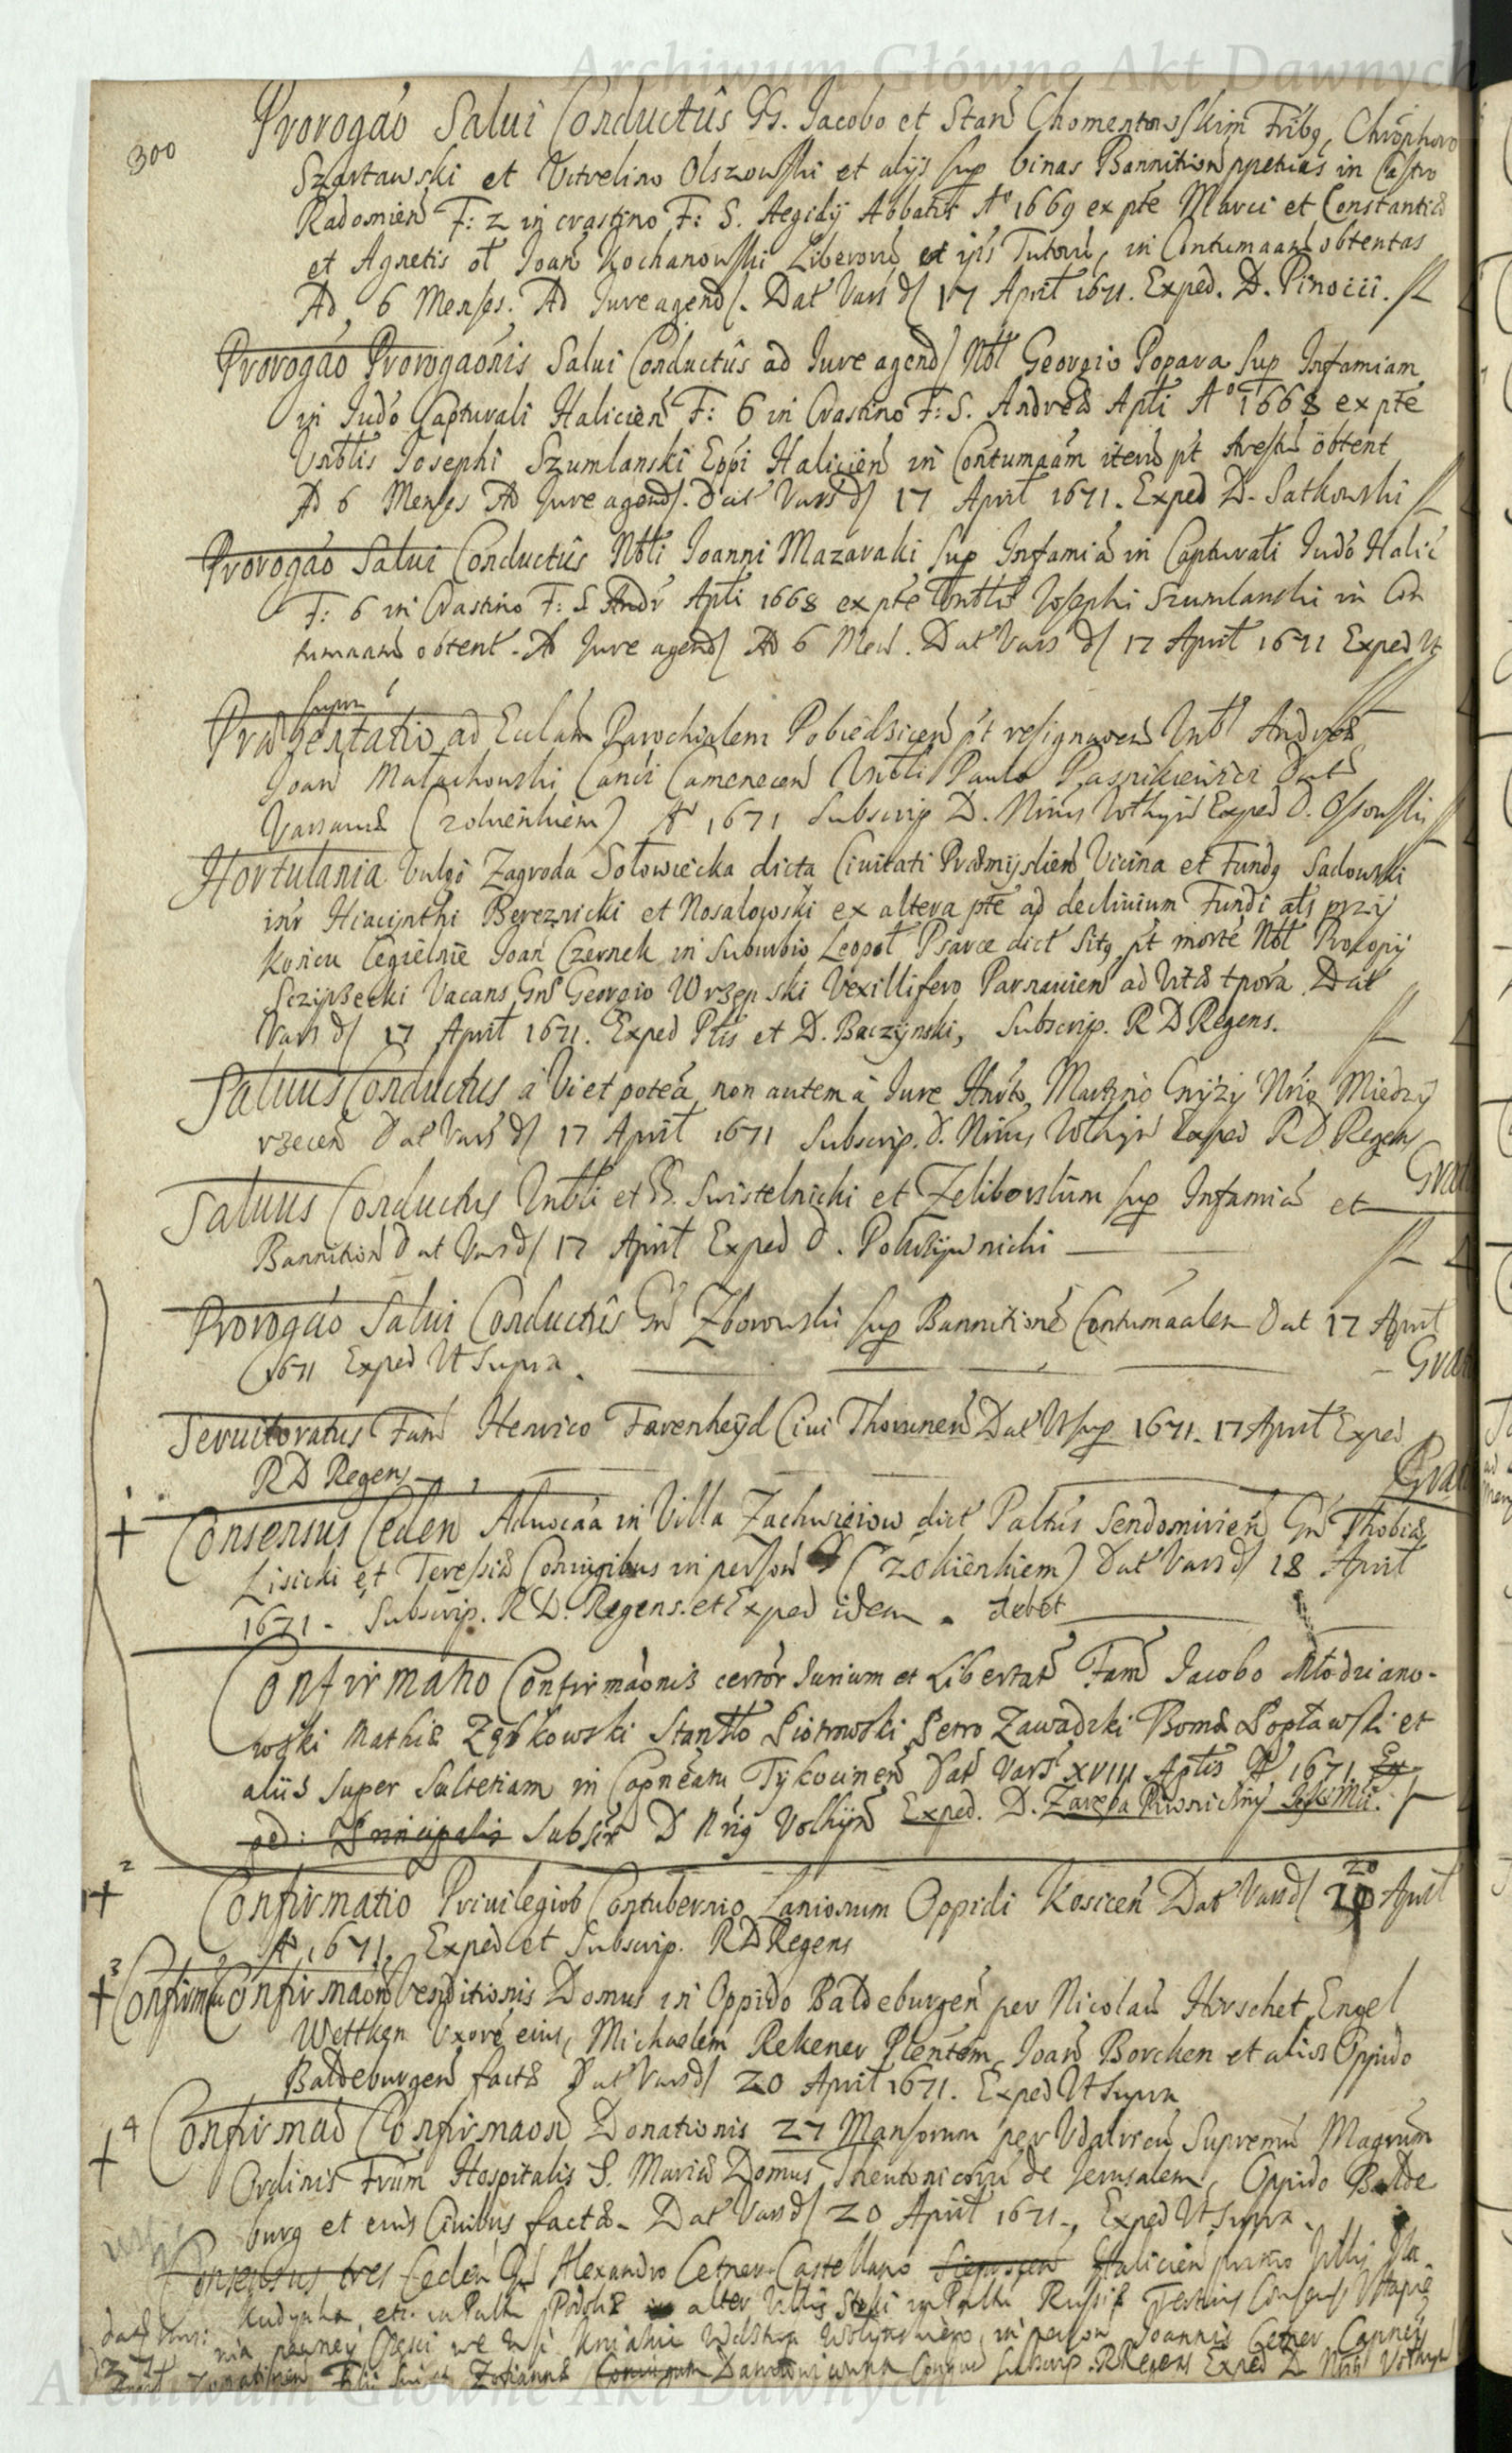 Archiwum Główne Akt Dawnych
300
Prorogáo Salui Conductûs GG. Jacobo et Stań Chomentowskim Frib9, Chrōphoro
Szartawski et Vitvelino Olszowski et alijs sup binas Bannition ppetuas in Castro
Radomień F: 2 in crastino F: S. Aegidij Abbatis Aº 1669 ex pte Marci et Constantiæ
et Agnetis ol Joan Kochanowski Liberorũ et ijs Tutorũ, in Contumaam obtentas
Ad 6 Menses. Ad Jure agend. Dat Vars d 17 April 1671. Exped. D. Pinocii.
Prorogáo Prorogaónis Salui Conductûs ad Jure agend Nbl Georgio Popara Sup Infamiam
in Judo Capturali Halicień F: 6 in Crastino F: S. Andreæ Apli Aº 1668 ex pte
Vnblis Josephi Szumlanski Eppi Halicień in Contumaám itern pt Arest obtent
Ad 6 Menses Ad Jure agend. Dat Vars d 17 April 1671. Exped D. Satkowski
Prorogáo Salui Conductûs Nbli Joanni Mazaraki Sup Infamiã in Capturali Judo Halic
F: 6 in Crastino F: S Andr Apli 1668 ex pte Vnblis Josephi Szumlanski in Con
tumaam obtent. Ad Jure agend Ad 6 Men. Dat Vars d 17 April 1671 Exped Vt
supra
Præsentatio ad Eccłam Parochialem Pobiedziceń pt resignaoem Vnbl Andreæ
Joan Małachowski Canci Camenecen Vnbli Paulo Pasnikiewicz Dat
Varsauiæ (zokienkiem) Aº 1671 Subscrip D. Nrius Wołhyn Exped D. Ossowski
Hortulania Vulgo Zagroda Sołowiecka dicta Ciuitati Præmyslień Vicina et Fund9 Sadowski
intr Hiacynthi Bereznicki et Nosalowski ex altera pte ad decliuium Fundi als przy
końcu Cegielnie Joan Czernek in Suburbio Leopol Psarce dict Sit9 pt morté Nbl Procopij
Szczipzecki Vacans Gns Georgio Wrzępski Vexillifero Parnauień ad Vitæ tpora. Dat
Vars d 17 April 1671. Exped Ptis et D. Baczynski, Subscrip. R D Regens.
Saluus Conductus à Vi et potea, non autem à Jure Hnto, Martino Gnyzy Nrio Miedzy
rzeceń Dat Vars d 17 April 1671 Subscrip. D. Nrius Wołhyn Exped R D Regens
Gra
Saluus Conductus Vnbli et GG. Swistelnicki et Zeliborskim sup Infamiã et
Bannitioń Dat Vars d 17 April Exped D.
Prorogáo Salui Conductûs Gn Zborowski sup Bannitioné Contumaalem Dat 17 April
1671 Exped Vt Supra.
Gra
Seruitoratus Fam Henrico Farenheyd Ciui Thoruneń Dat Vt sup 1671. 17 April Exped
R D Regens
Gra
1
+ Consensus Ceden Aduocaa in Villa Zachwieiow dict Paltûs Sendomirień Gn Thobiæ
Lisicki et Teressiæ Coniugibus in person (zokienkiem) Dat Vars d 18 April
1671. Subscrip. R D. Regens. et Exped idem. debet
Confirmatio Confirmaónis certor Jurium et Libertat Fam Jacobo Młodziano-
wski Mathiæ Ząbkowski Stanisło Piotrowski Petro Zawadzki Bomæ Popławski et
aliis super Sulteriam in Capneatu Tykocineń Dat Vars XVIII Aplis Aº 1671. Ex
ped: Principalis Subscr D Nrig Wołhyn Exped. D. Zaręba
2
+ Confirmatio Priuilegior Contubernio Laniorum Oppidi Kosiceń Dat Vars d 20 April
Aº 1671. Exped et Subscrip. R D Regens
3
+ Confirma Confirmaon Venditionis Domus in Oppido Baldeburgeń per Nicolaũ Hirschet, Engel
Wettken Vxoré eius, Michaelem Rekener Plentem, Joan Borcken et alios Oppido
Baldeburgeń factæ Dat Vars d 20 April 1671. Exped Vt Supra
4
+ Confirmaó Confirmaon Donationis 27 Mansorum per Vdalricũ Supremũ Magrum
Ordinis Frum Hospitalis S. Mariæ Domus Theutonicorũ de Jerusalem, Oppido Balde
burg et eius Ciuibus factæ. Dat Vars d 20 April 1671. Exped Vt Supra.
Consensus tres Ceden Gn Alexandro Cetner Castellano Halicień primo Villis
Kudynka etc. in Paltu Podoliæ alter Villis Steki in Paltu Russiæ Tertius Consensus
pewney Części we Wsi Kniahie in person Joannis Cetner Capnei
Filii Sui et Zofiannæ Subscrip. R Regens Exped D Nrig Wołhyn
Archiwum Główne Akt Dawnych